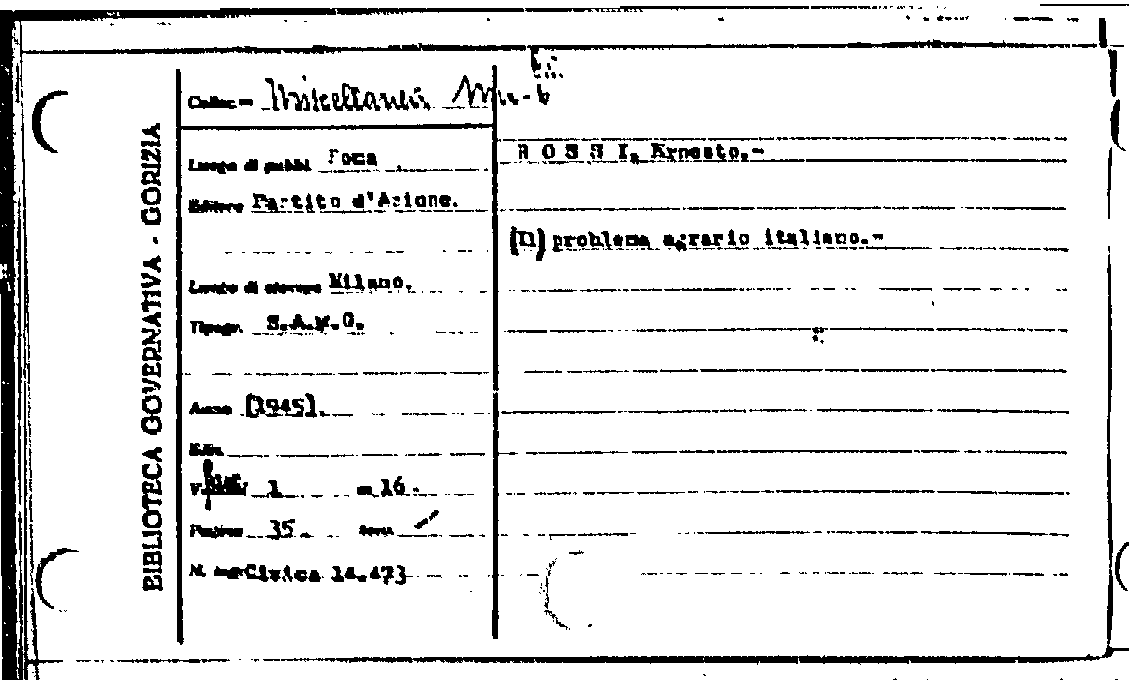 BIBLIOTECA GOVERNATIVA - GORIZIA
Colloc.= Miscellanea
Luogo di pubbl. Roma
Editore Partito d'Azione.
Luogo di stampa Milano.
Tipogr.
Anno [1945].
Ediz.
1 16.
Pagine 35.
Civica 14.473
R O S S I, Ernesto.-
(Il) problema agrario italiano.-